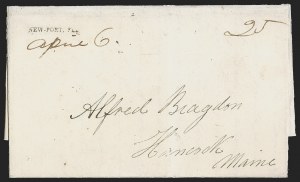 NEW-PORT, Fl.
April 6.
25
Alfred Bragdon
Hancock
Maine